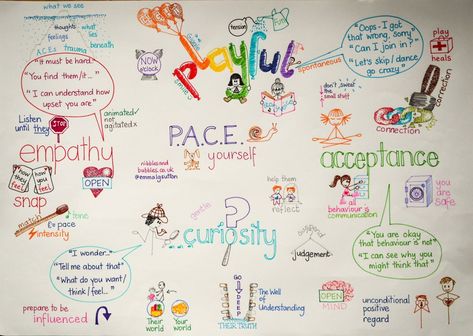 what we see
thoughts
feelings
what lies
beneath
A.C.Es trauma
"It must be hard..
You find them/it..."
"I can understand how
upset you are"
animated ✓
not
agitated x
Listen
until they
STOP
empathy
how
they
feel
how
you
feel
OPEN
snap
match
tone
& pace
intensity
"I wonder..."
"Tell me about that"
"What do you want/
think/feel..."
prepare to be
influenced
NOW
o'clock
playful
tension
Fun
spontaneous
"Oops - I got
that wrong, sorry"
"Can I join in?"
"Let's skip/dance,
go crazy"
play
heals
don't sweat
the
small stuff
P.A.C.E.
yourself
nibbles and
bubbles.co.uk
help them
reflect
gentle
?
...curiosity
judgement
GO
DEEP
The Well
of
Understanding
THEIR TRUTH
Their
world
Your
world
connection
correction
acceptance
all
behaviour is
communication
you are
safe
"You are okay
that behaviour is not"
"I can see why you
might think that"
OPEN
MIND
unconditional
positive
regard